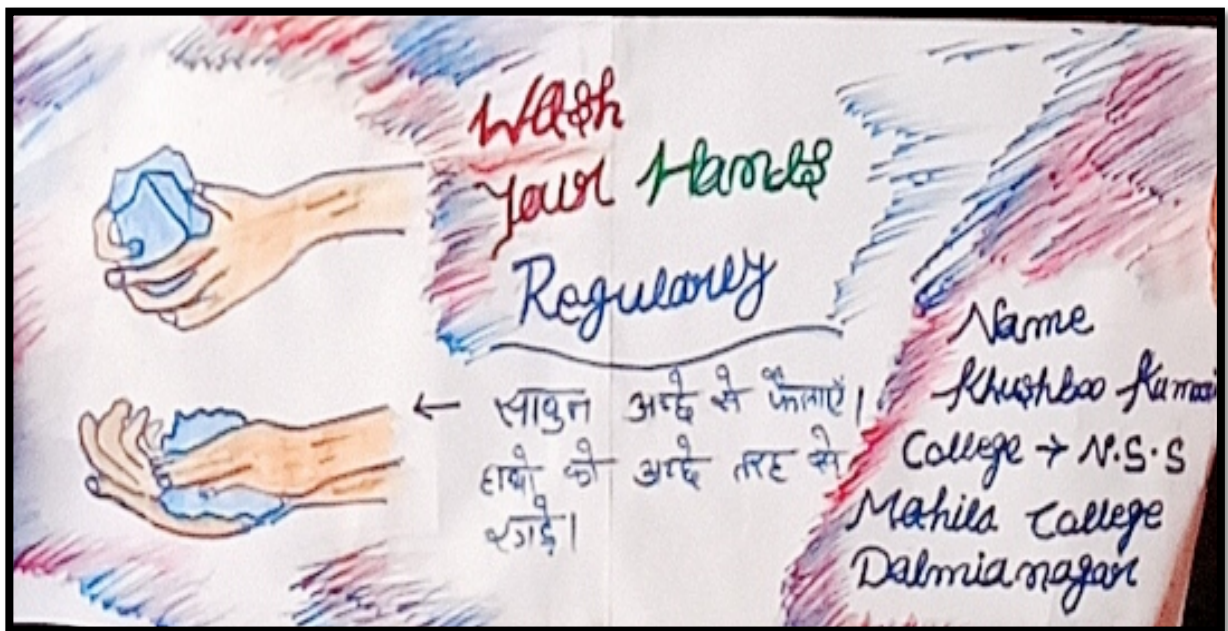 Wash
Your Hands
Regularly
← साबुन अच्छे से फैलाएँ।
हाथो को अच्छे तरह से
रगड़े।
Name
Khushboo Kumari
College → N.S.S
Mahila College
Dalmianagar